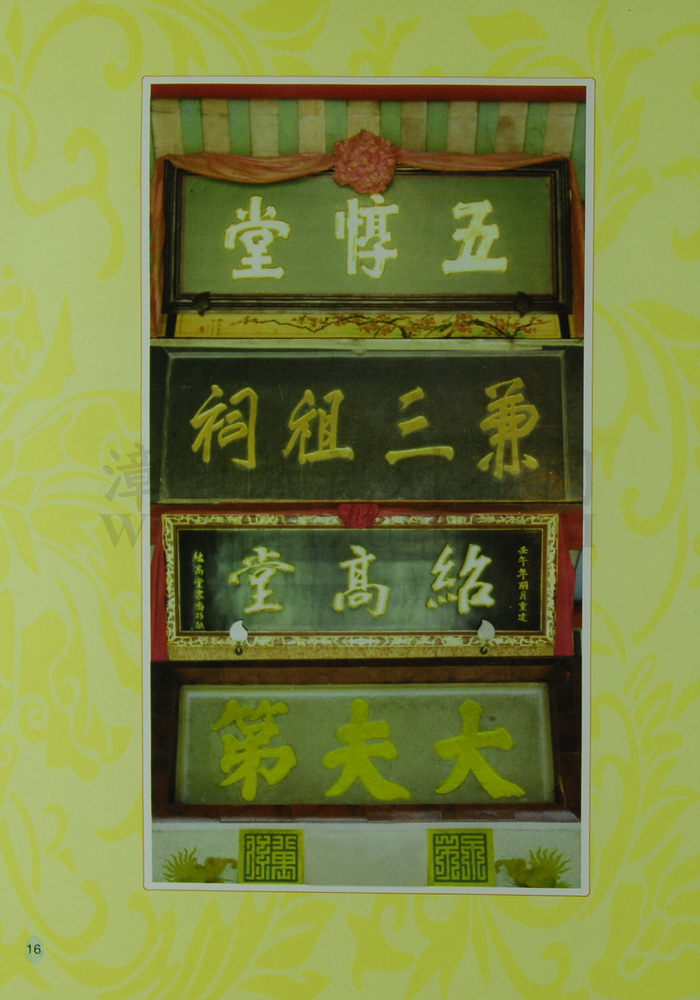 五惇堂
兼三祖祠
壬午年丽月重建
紹高堂
大夫第
16